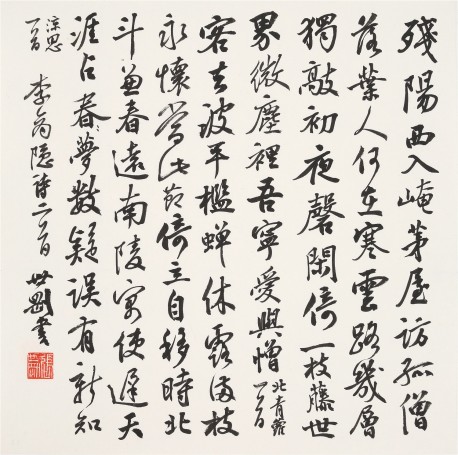 殘陽西入崦茅屋訪孤僧
落葉人何在寒雲路幾層
獨敲初夜磬閑倚一枝藤世
界微塵裡吾寧愛與憎北青蘿一首
客去波平檻蟬休露滿枝
永懷當此節倚立自移時北
斗兼春遠南陵寓使遲天
涯占春夢數疑誤有新知
涼思一首 李商隱詩二首 世剛書